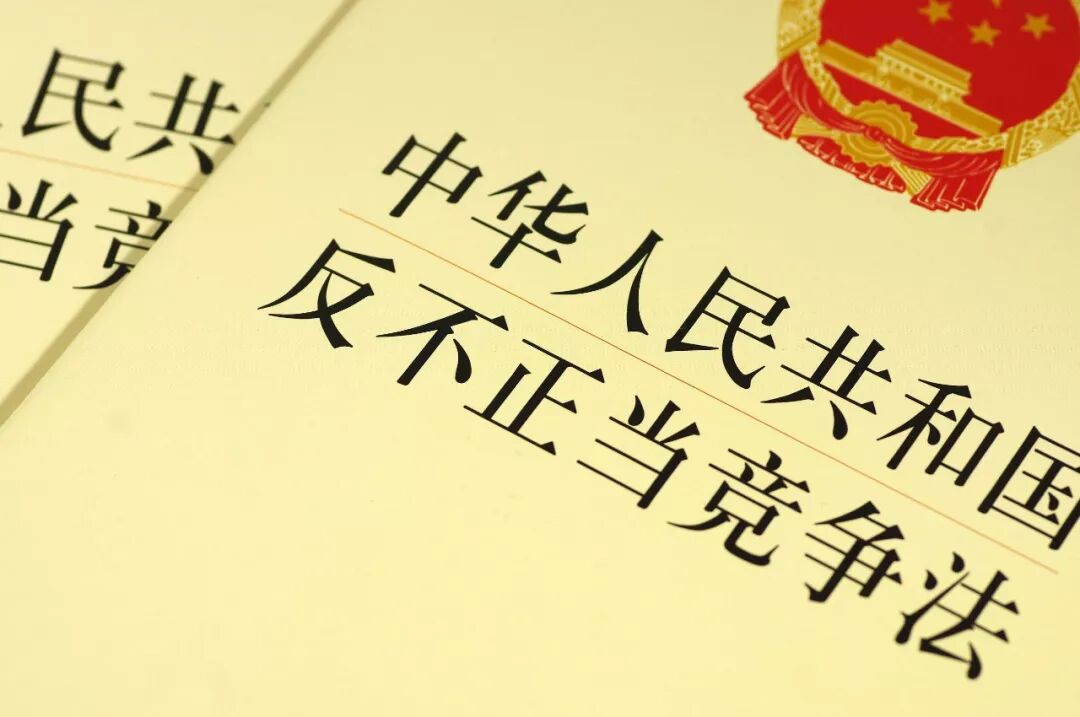 民共
当竞
中华人民共和国
反不正当竞争法